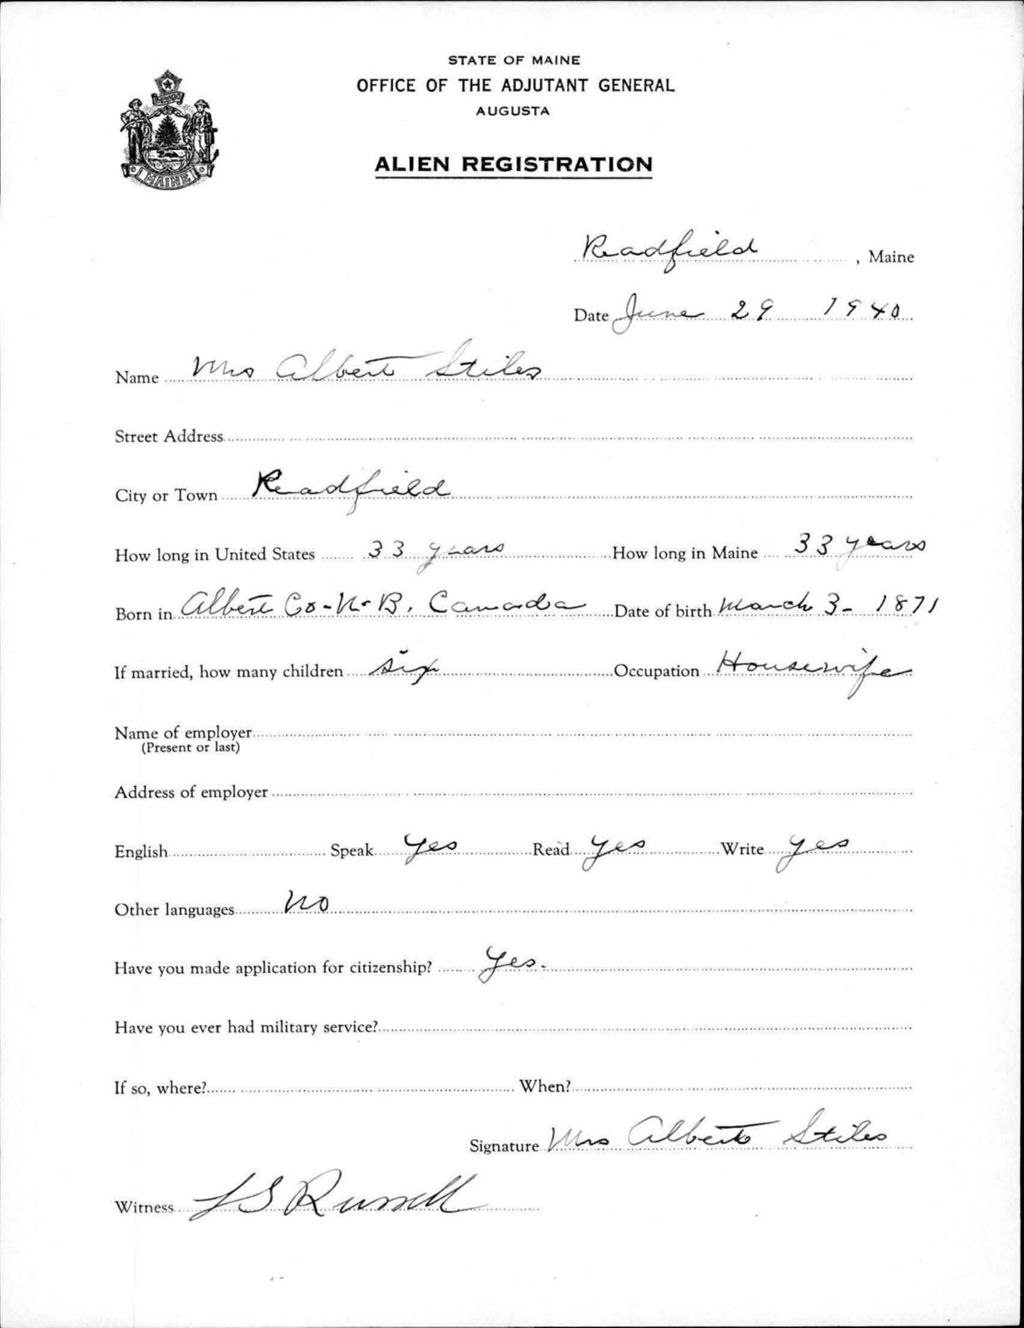 STATE OF MAINE
OFFICE OF THE ADJUTANT GENERAL
AUGUSTA
ALIEN REGISTRATION
MAINE
Readfield, Maine
Date June 29 1940
Name Mrs Albert Stiles
Street Address
City or Town Readfield
How long in United States 33 years How long in Maine 33 years
Born in Albert Co-N-B, Canada Date of birth March 3- 1871
If married, how many children six Occupation Housewife
Name of employer
(Present or last)
Address of employer
English Speak yes Read yes Write yes
Other languages no
Have you made application for citizenship? Yes.
Have you ever had military service?
If so, where? When?
Signature Mrs Albert Stiles
Witness L S Russell